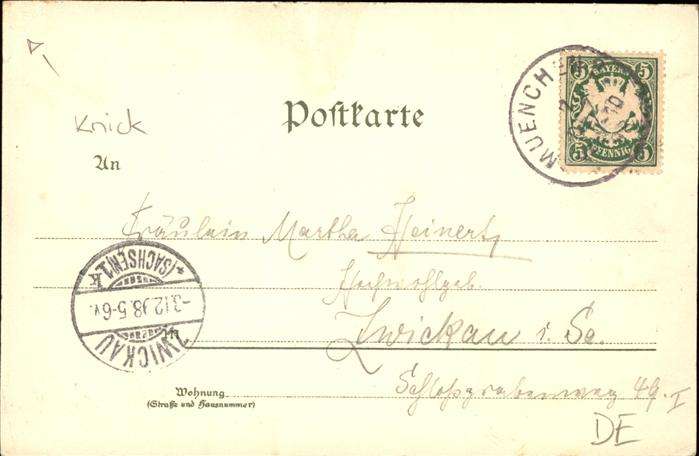 Knick
Postkarte
MUENCHEN
5 BAYERN 5
5 PFENNIG 5
An
Fräulein Martha Heinert,
Hochwohlgeb.
Zwickau i. Sa.
Schloßgrabenweg 49. I
ZWICKAU
-3.12.98. 5-6 V.
+(SACHSEN)1.*
Wohnung
(Straße und Hausnummer)
DE